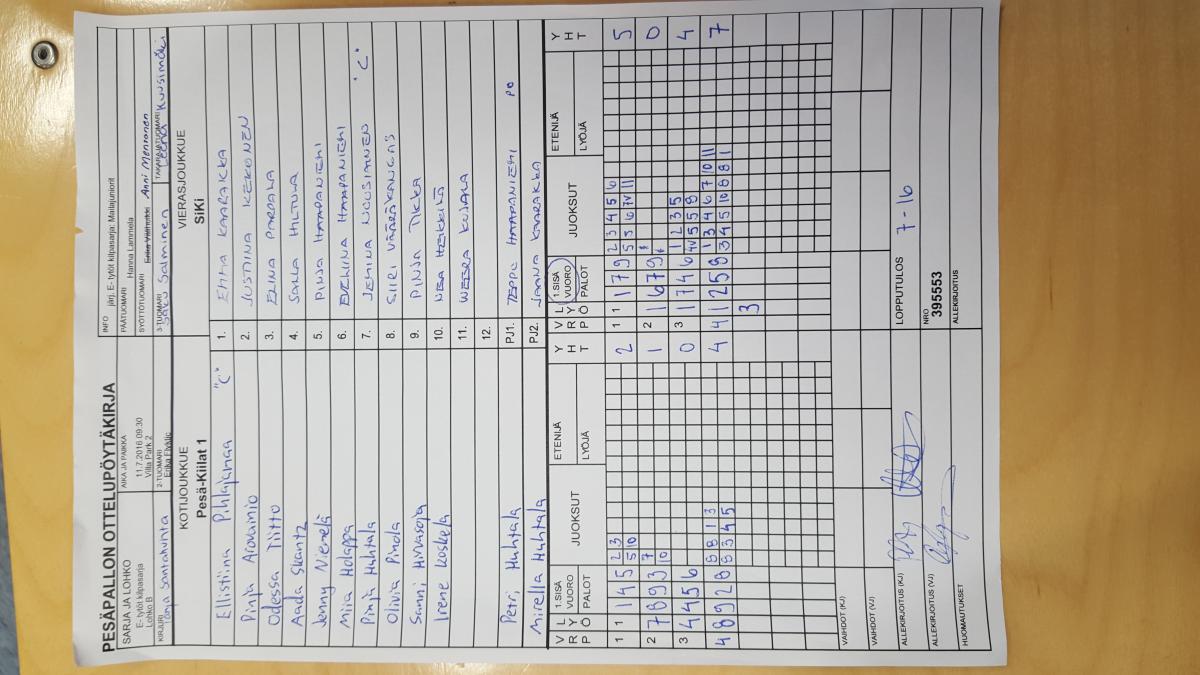 PESÄPALLON OTTELUPÖYTÄKIRJA
SARJA JA LOHKO
E- tytöt kilpasarja
Lohko B
AIKA JA PAIKKA
11.7.2016 09:30
Villa Park 2
INFO järj. E- tytöt kilpasarja: Mailajuniorit
PÄÄTUOMARI Hanna Lammela
SYÖTTÖTUOMARI Anni Menronen
KIRJURI
Tanja Santahuhta
2-TUOMARI
3-TUOMARI
Saku Salminen
TAKARAJATUOMARI
Leena Kuusimäki
KOTIJOUKKUE
Pesä-Kiilat 1
VIERASJOUKKUE
SiKi
Ellistiina Pihlajamaa "C" 1. KAARAKKA
Pinja Arovainio 2. JUSTIINA KEKONEN
Odessa Tiitto 3. ELINA
Aada Skantz 4. SALLA HILTULA
Jenny Niemelä 5. PINJA HAAPANIEMI
Miia Holappa 6. EVELIINA HAAPANIEMI
Pinja Huhtala 7. JEMINA NOUSIAINEN "C"
Olivia Pinola 8. SIIRI VÄÄRÄKANGAS
Sanni Hirvasoja 9. PINJA TIKKA
Irene Koskela 10. NEA HEIKKILÄ
11. WEERA KUJALA
12.
Petri Huhtala PJ1. TEPPO HAAPANIEMI PO
Mirella Huhtala PJ2. JAANA KAARAKKA
V R P L Y Ö 1.SISÄ VUORO PALOT JUOKSUT ETENIJÄ LYÖJÄ Y H T V R P L Y Ö 1.SISÄ VUORO PALOT JUOKSUT ETENIJÄ LYÖJÄ Y H T
1 1 1 4 5 2 3 2 1 1 1 7 9 2 3 4 5 6 5
5 10 5 5 6 7V 11
2 7 8 9 3 7 1 2 1 6 7 9 0
10
3 4 4 5 6 0 3 1 7 4 6 1 2 3 5 4
4V 5 5 9
4 8 9 2 8 8 8 1 3 4 4 4 1 2 5 8 1 3 4 6 7 10 11 7
8 3 4 5 3 4 5 10 8 8 1
3
VAIHDOT (KJ)
VAIHDOT (VJ)
ALLEKIRJOITUS (KJ)
LOPPUTULOS 7 - 16
ALLEKIRJOITUS (VJ)
NRO
395553
HUOMAUTUKSET
ALLEKIRJOITUS